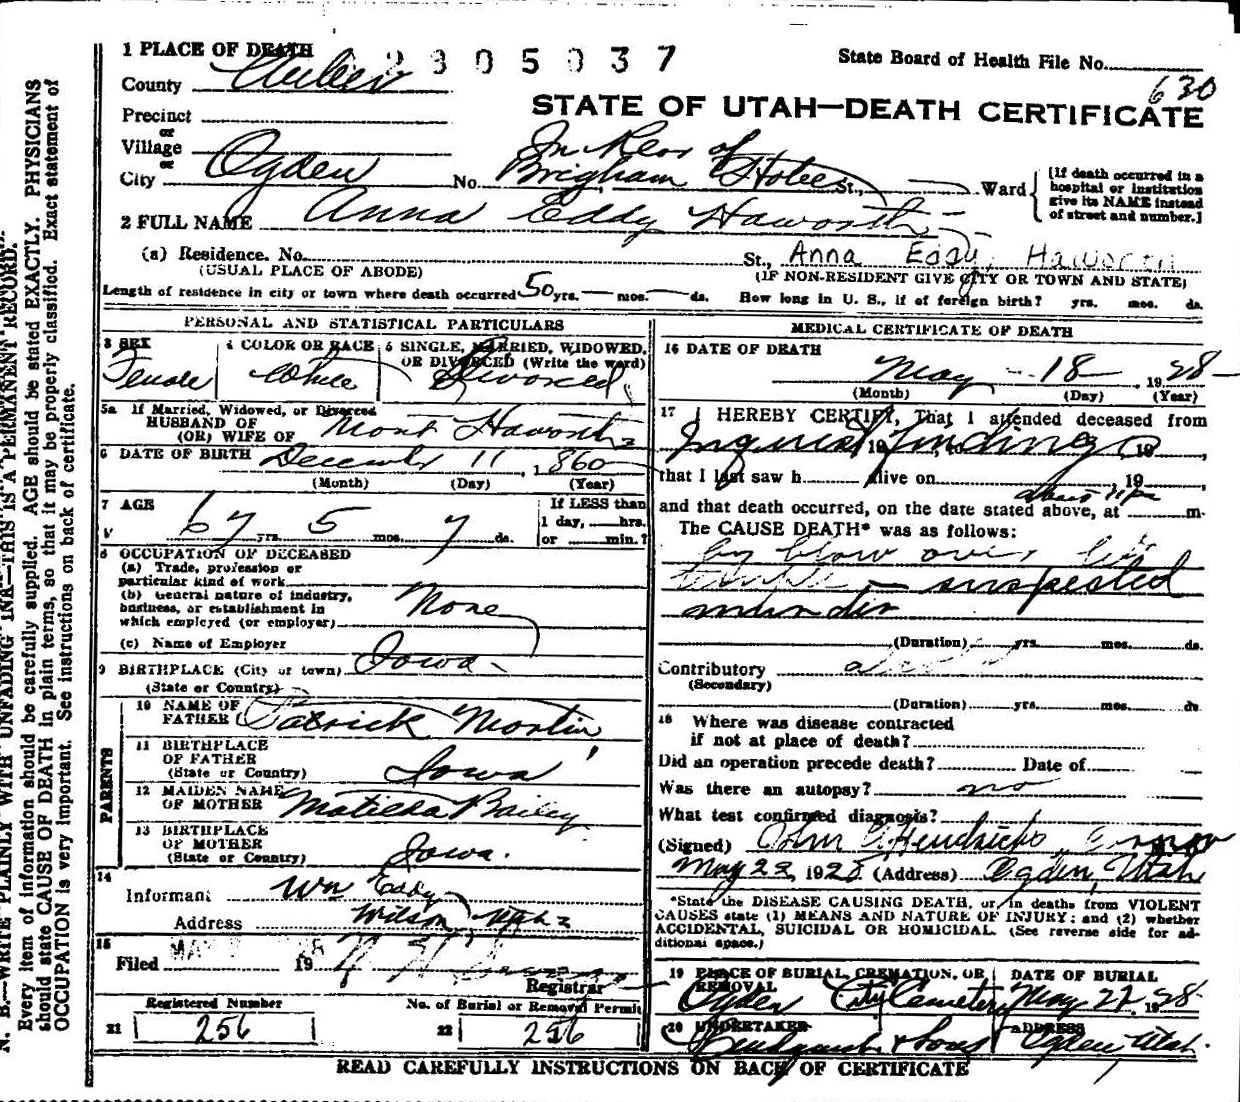 1 PLACE OF DEATH
2305037
State Board of Health File No.
630
County Weber
STATE OF UTAH—DEATH CERTIFICATE
Precinct
or
Village
or
City Ogden No. In Rear of Brigham Hotel St., Ward
[If death occurred in a hospital or institution give its NAME instead of street and number.]
2 FULL NAME Anna Eddy Haworth
(a) Residence. No. St., Anna Eddy Haworth
(USUAL PLACE OF ABODE) (IF NON-RESIDENT GIVE CITY OR TOWN AND STATE)
Length of residence in city or town where death occurred 50 yrs. — mos. — ds. How long in U. S., if of foreign birth? yrs. mos. ds.
PERSONAL AND STATISTICAL PARTICULARS
3 SEX
Female
4 COLOR OR RACE
White
5 SINGLE, MARRIED, WIDOWED, OR DIVORCED (Write the word)
Divorced
5a If Married, Widowed, or Divorced
HUSBAND OF
(OR) WIFE OF Mont Haworth
6 DATE OF BIRTH December 11, 1860
(Month) (Day) (Year)
7 AGE
67 yrs. 5 mos. 7 ds.
If LESS than
1 day, hrs.
or min.?
8 OCCUPATION OF DECEASED
(a) Trade, profession or
particular kind of work
(b) General nature of industry,
business, or establishment in
which employed (or employer) None
(c) Name of Employer
9 BIRTHPLACE (City or town) Iowa
(State or Country)
PARENTS
10 NAME OF
FATHER Patrick Martin
11 BIRTHPLACE
OF FATHER
(State or Country) Iowa
12 MAIDEN NAME
OF MOTHER Matilda Bailey
13 BIRTHPLACE
OF MOTHER
(State or Country) Iowa.
14
Informant Wm Eddy
Address Wilson, Utah
15
Filed MAY 19
Registrar
Registered Number
21 256
No. of Burial or Removal Permit
22 256
MEDICAL CERTIFICATE OF DEATH
16 DATE OF DEATH
May 18, 1928
(Month) (Day) (Year)
17 I HEREBY CERTIFY, That I attended deceased from
Inquest 19 finding 19,
that I last saw h alive on , 19
and that death occurred, on the date stated above, at m.
The CAUSE DEATH* was as follows:
by blow over left
— suspected
murder
(Duration) yrs. mos. ds.
Contributory
(Secondary)
(Duration) yrs. mos. ds.
18 Where was disease contracted
if not at place of death?
Did an operation precede death? Date of
Was there an autopsy? no
What test confirmed diagnosis?
(Signed) John Hendricks
May 22, 1928 (Address) Ogden, Utah
*State the DISEASE CAUSING DEATH, or, in deaths from VIOLENT
CAUSES state (1) MEANS AND NATURE OF INJURY; and (2) whether
ACCIDENTAL, SUICIDAL OR HOMICIDAL. (See reverse side for ad-
ditional space.)
19 PLACE OF BURIAL, CREMATION, OR REMOVAL
Ogden City Cemetery
DATE OF BURIAL
May 22, 1928
20 UNDERTAKER
& Sons
ADDRESS
Ogden, Utah.
READ CAREFULLY INSTRUCTIONS ON BACK OF CERTIFICATE
N. B.—WRITE PLAINLY WITH UNFADING INK—THIS IS A PERMANENT RECORD.
Every item of information should be carefully supplied. AGE should be stated EXACTLY. PHYSICIANS
should state CAUSE OF DEATH in plain terms, so that it may be properly classified. Exact statement of
OCCUPATION is very important. See instructions on back of certificate.